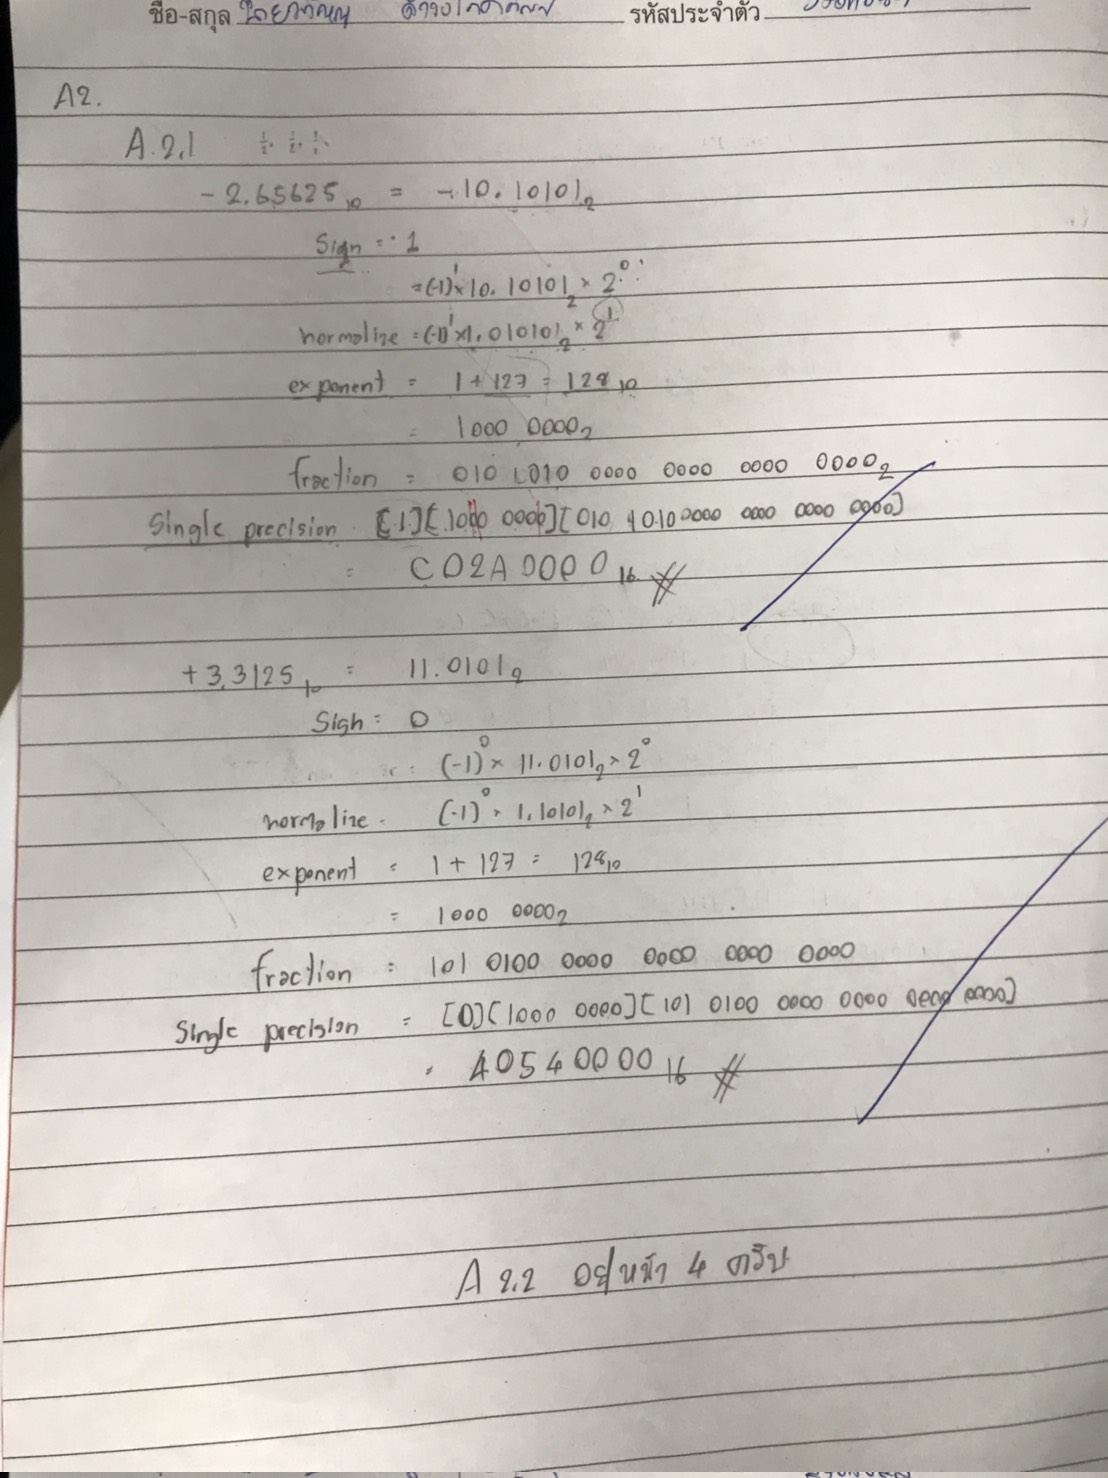 ชื่อ-สกุล รหัสประจำตัว
A2.
A.2.1 1/2. 1/2. 1/2.
- 2.65625₁₀ = -10.10101₂
Sign = 1
= (-1)¹ × 10.10101₂ × 2⁰
normalize = (-1)¹ × 1.010101₂ × 2¹
exponent = 1 + 127 = 128₁₀
= 1000 0000₂
fraction = 010 1010 0000 0000 0000 0000₂
Single precision [1][1000 0000][010 1010 0000 0000 0000 0000]
= C02A0000₁₆ #
+3.3125₁₀ = 11.0101₂
Sign = 0
= (-1)⁰ × 11.0101₂ × 2⁰
normalize. (-1)⁰ × 1.10101₂ × 2¹
exponent = 1 + 127 = 128₁₀
= 1000 0000₂
fraction = 101 0100 0000 0000 0000 0000
Single precision = [0][1000 0000][101 0100 0000 0000 0000 0000]
= 40540000₁₆ #
A 2.2 อยู่หน้า 4 ครับ